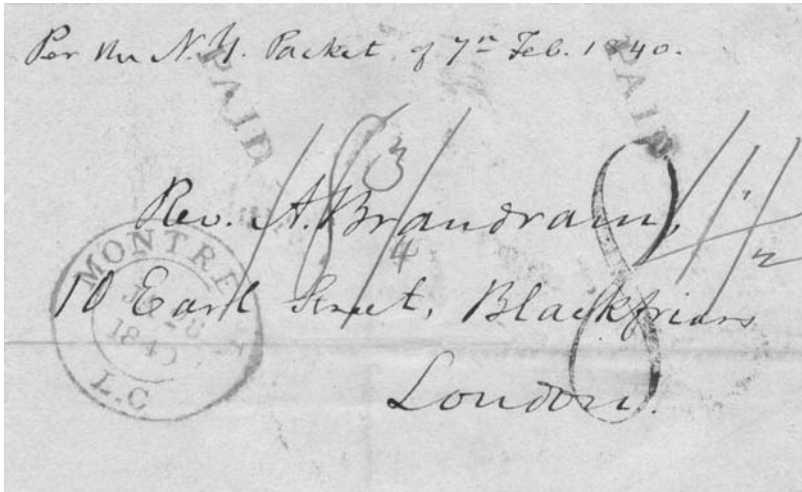 Per the N.Y. Packet of 7th Feb. 1840.
PAID
PAID
Rev. A. Brandram,
10 Earl Street, Blackfriars
London.
8
MONTRE
1840
L.C